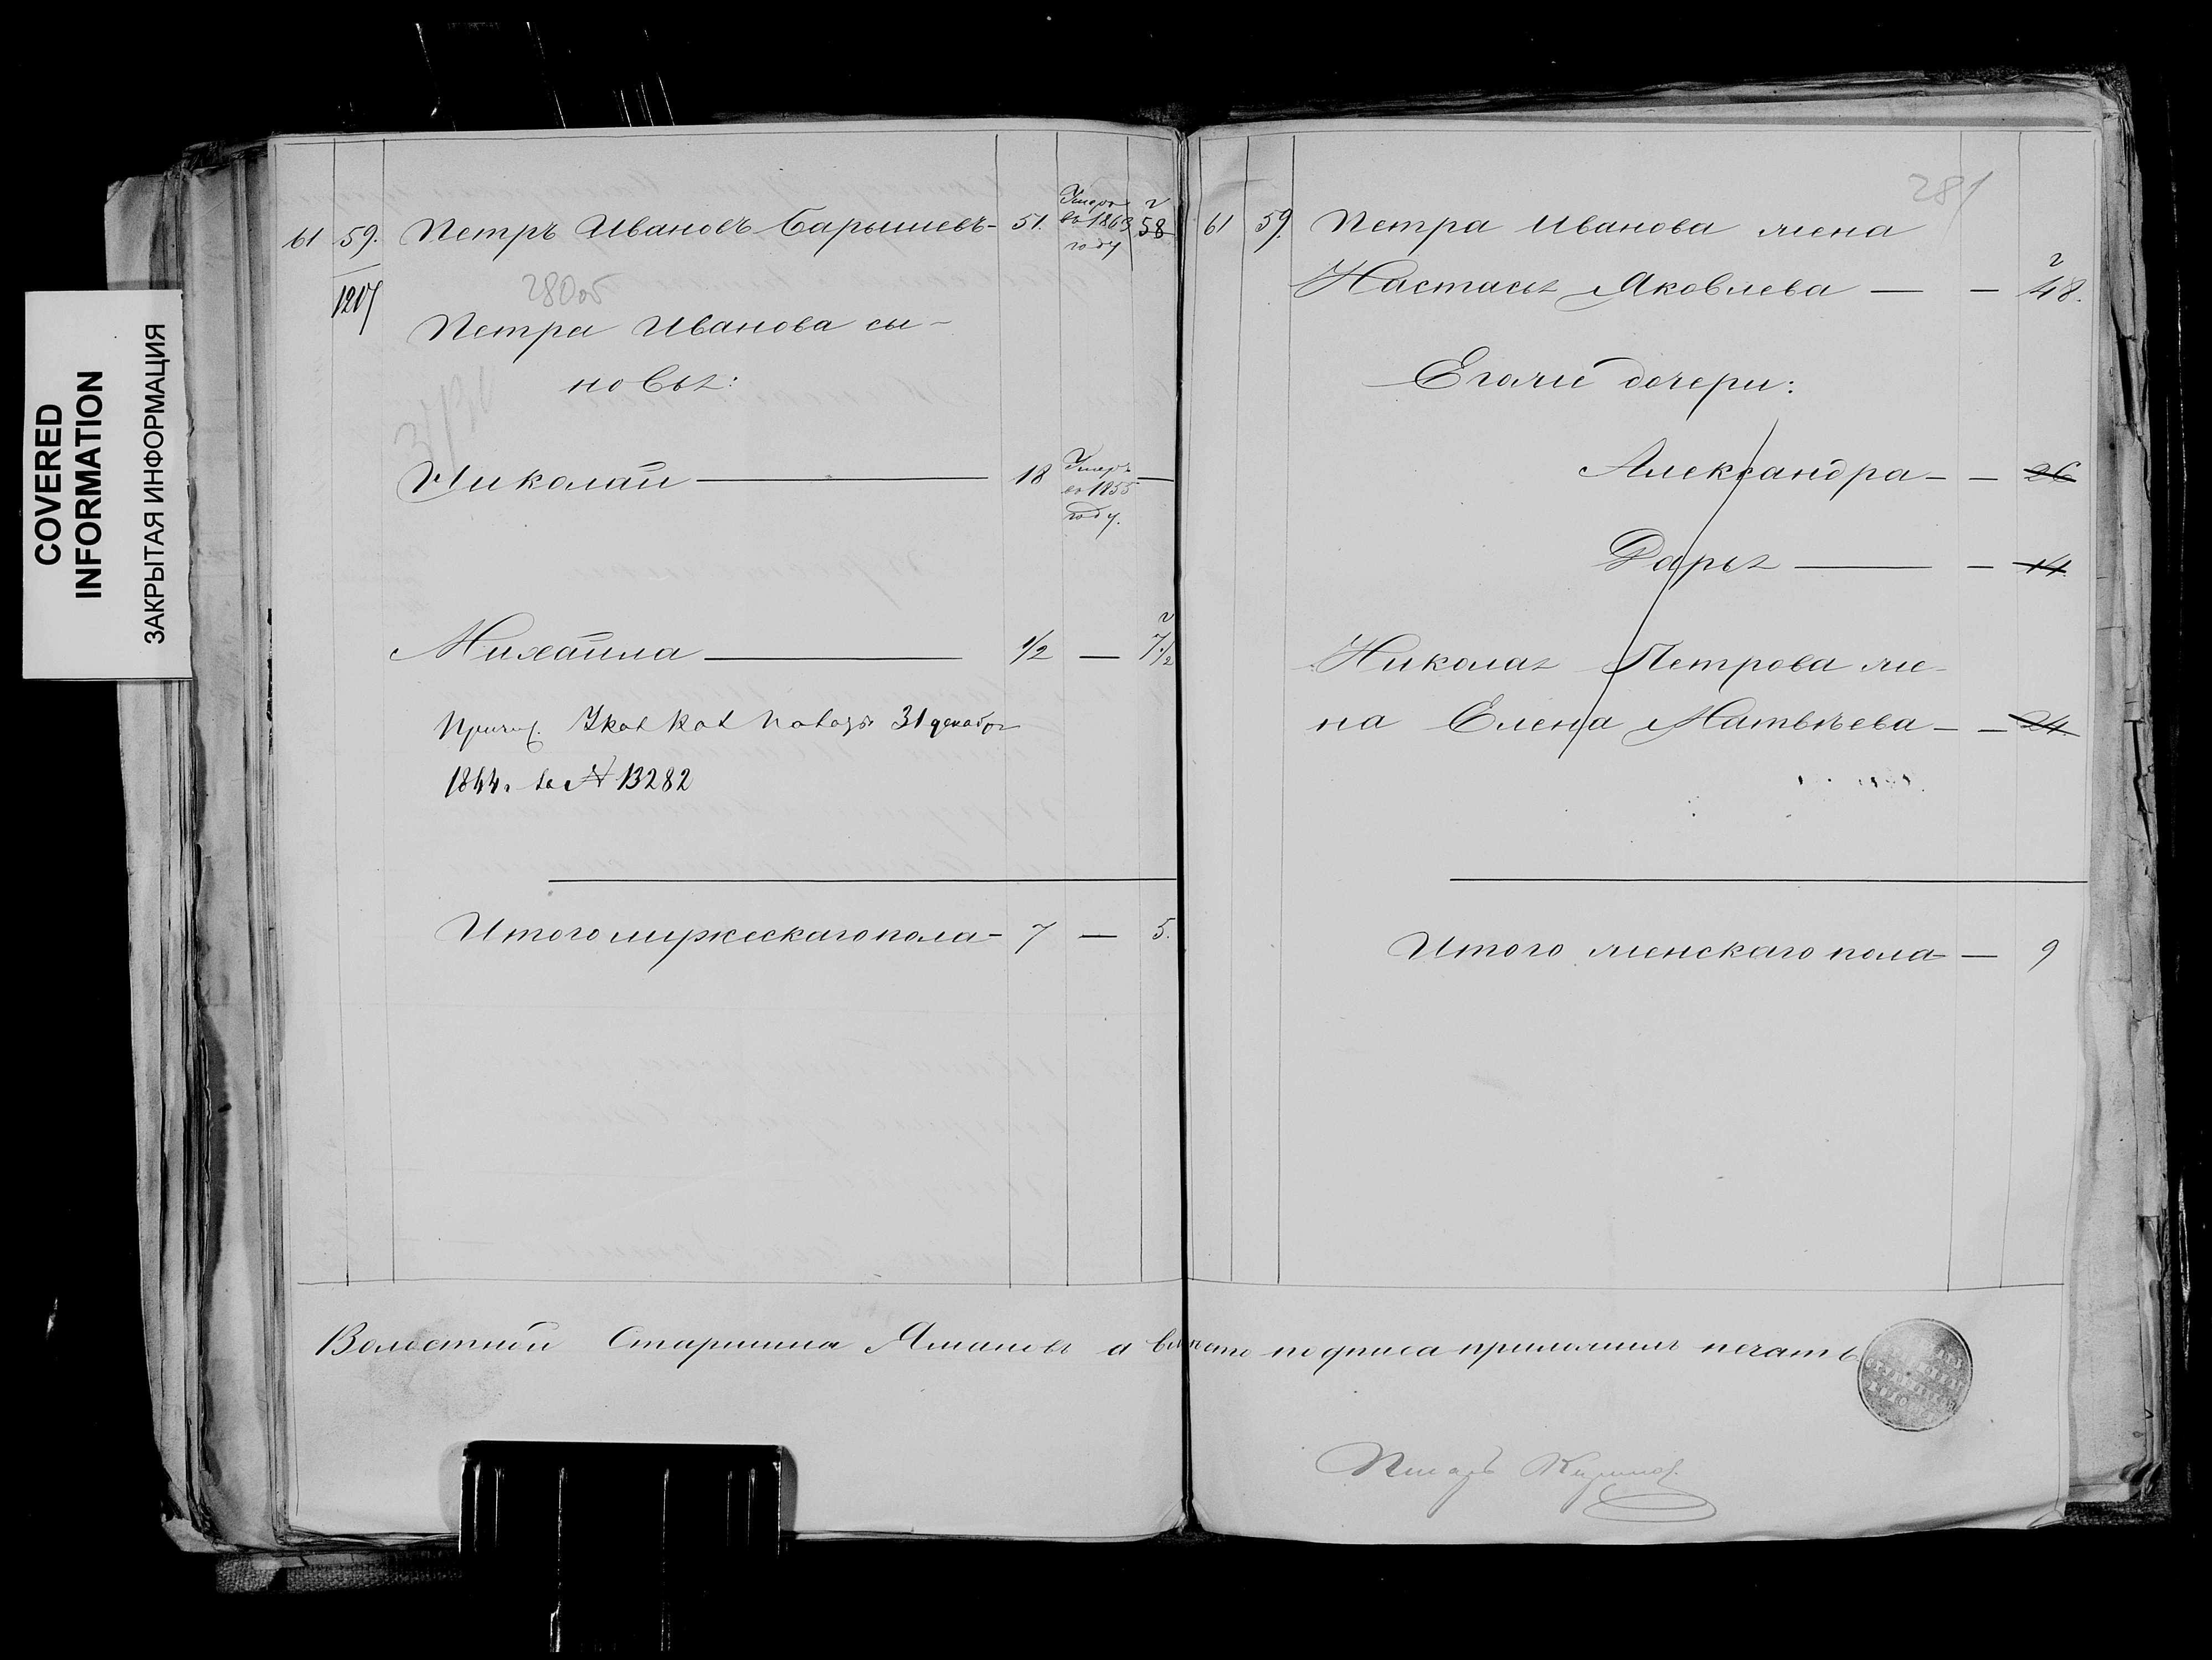 COVERED
INFORMATION
ЗАКРЫТАЯ ИНФОРМАЦИЯ
61 59. Петръ Ивановъ Барышевъ - 51. Умеръ въ 1863 году 58
1207
280об
Петра Иванова сы-
новья:
Николай — 18 Умеръ въ 1855 году. —
Михайла 1/2 — 7 1/2
31 декабр
1864. за № 13282
Итого мужескаго пола - 7 — 5.
281
61 59. Петра Иванова жена
Настасья Яковлева — — 48.
Егоже дочери:
Александра - - 26
Дарья — - 14
Николая Петрова же-
на Елена Матвѣева - - 24
Итого женскаго пола — 9
Волостной Старшина а вместо подписа приложилъ печать
Писарь